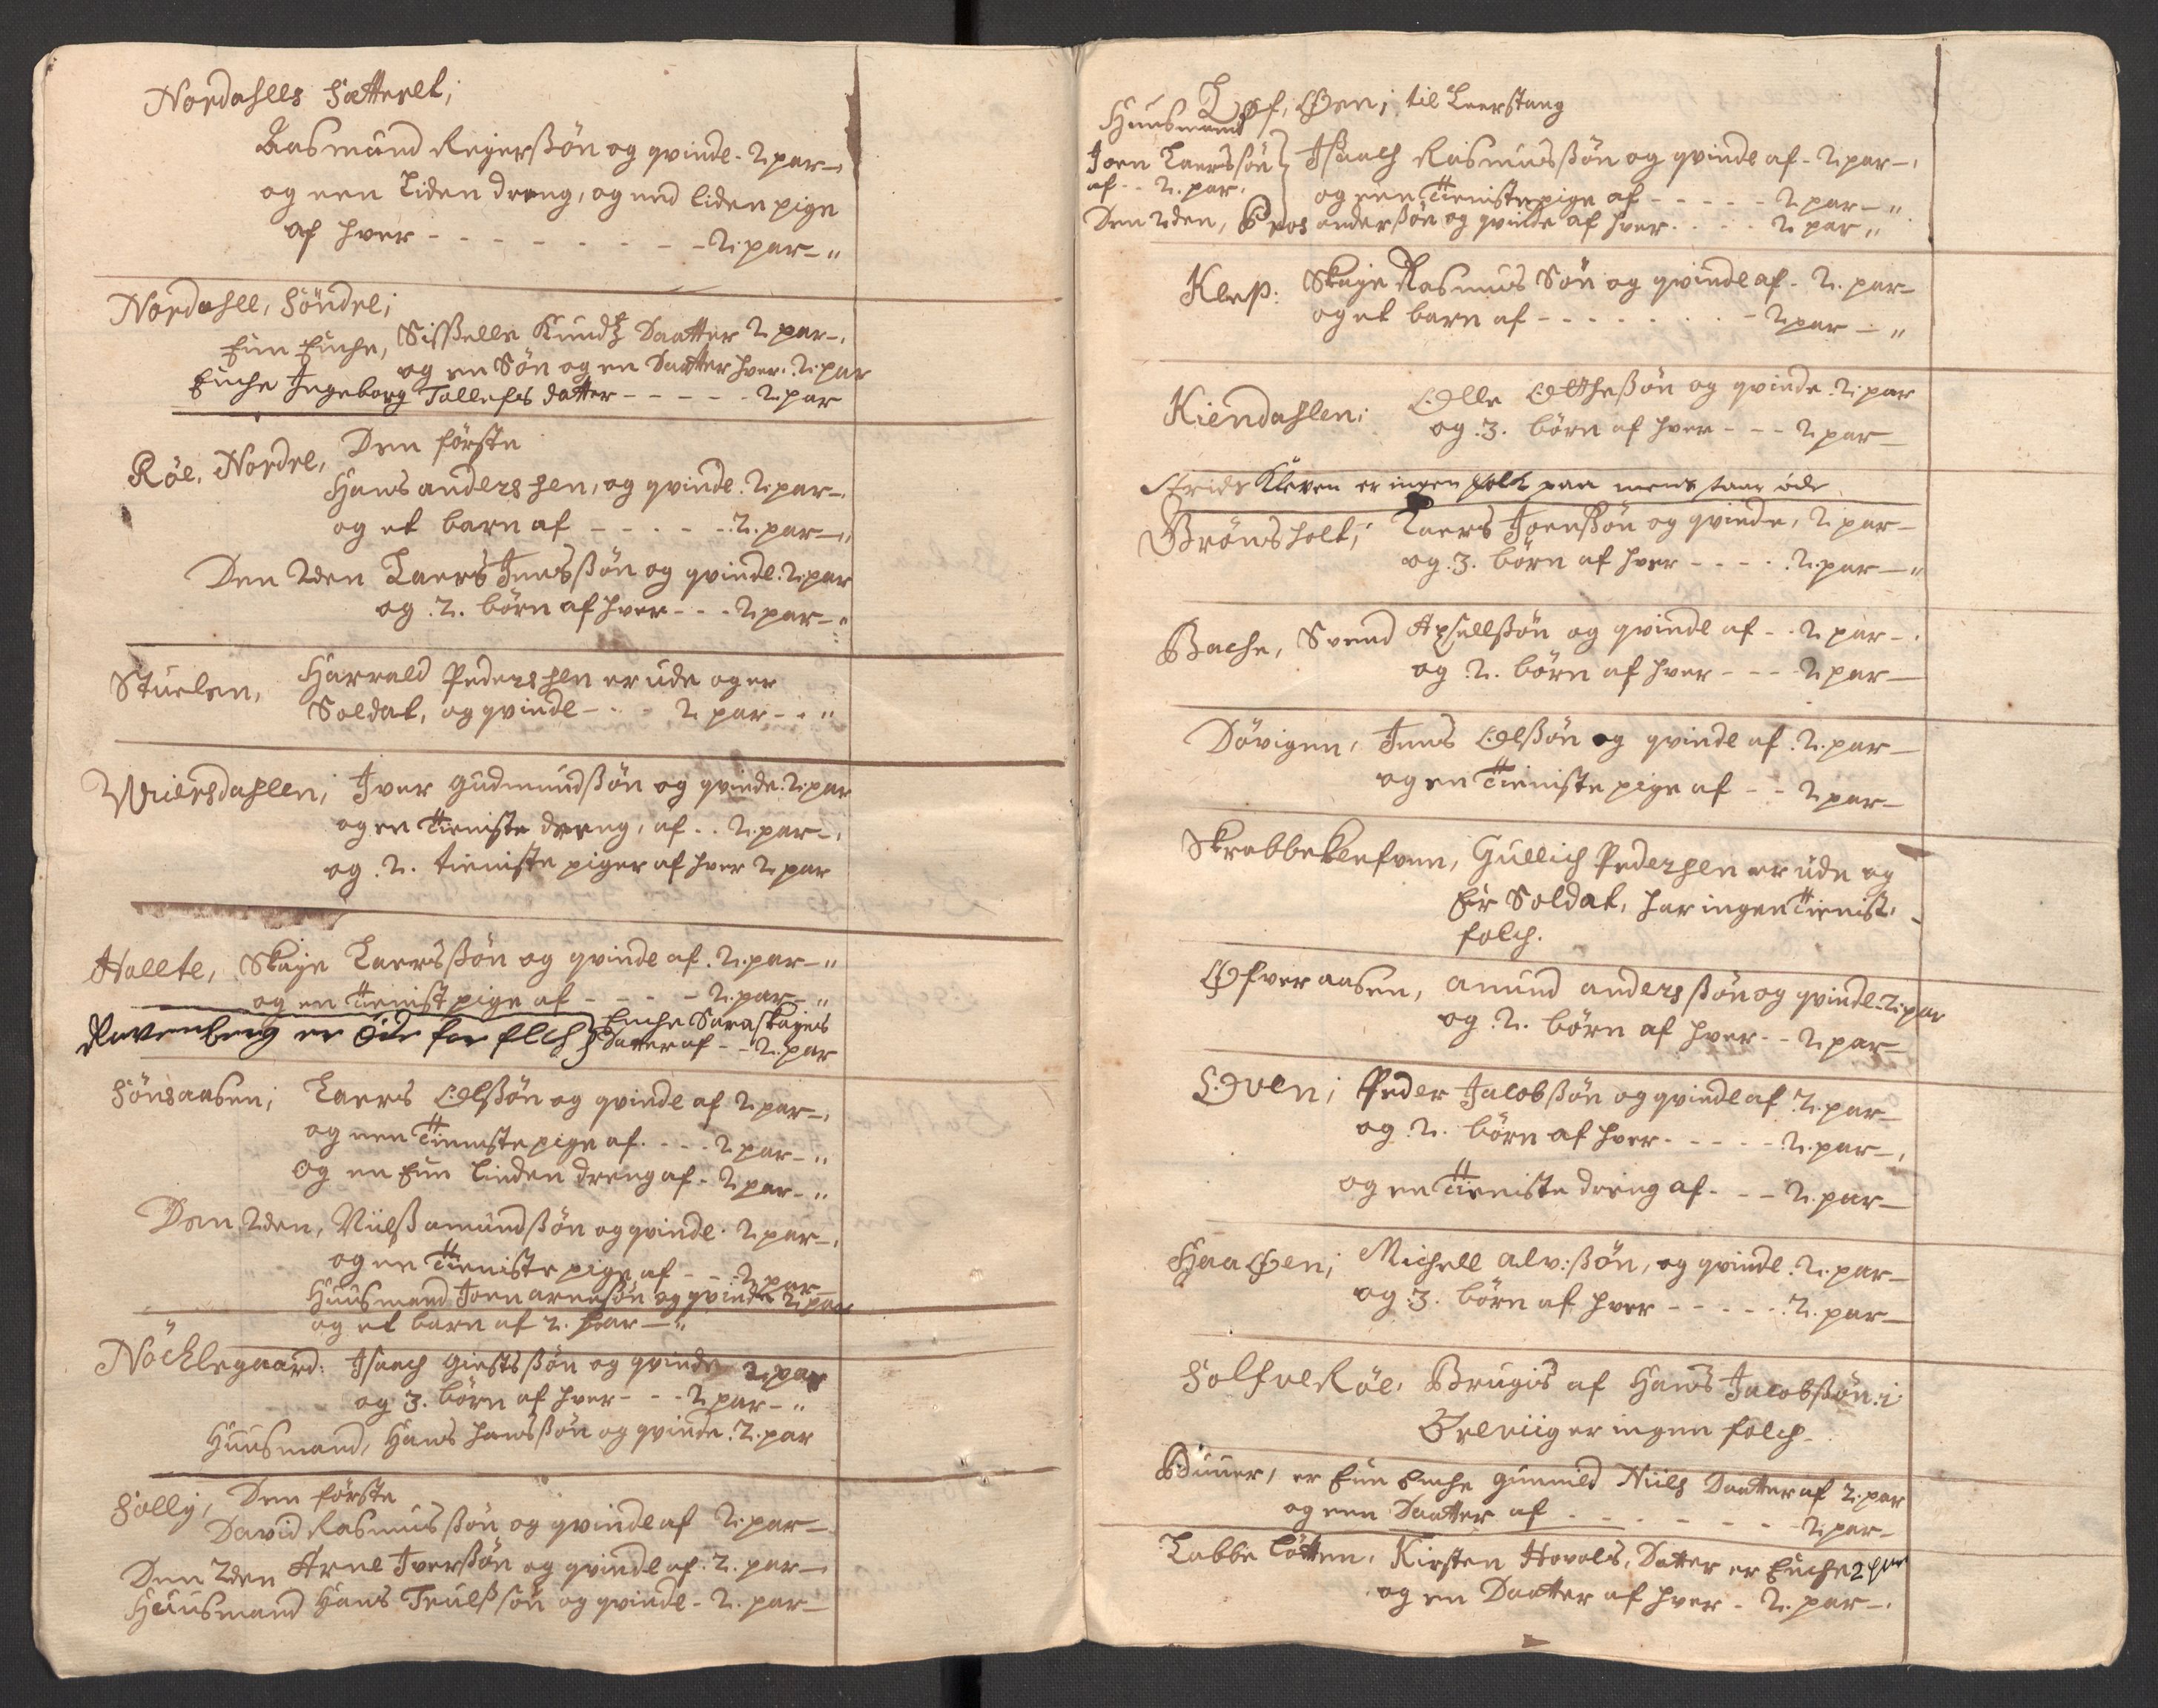 Nordahls Sætteret;
Aasmund Rejerssön og qvinde - 2 par -
og een Liden dreng, og end liden pige
af hver - - - - - - - - 2. par - "
Nordahll, Söndre;
Een Enche, Sissælle Knudtz Daatter 2 par -
og en Sön og en Daatter hver. 2. par
Enche Ingeborg Tollefs datter - - - - - 2 par
Röe, Nordre, Den förste
Hans anders sen, og qvinde. 2. par -
og et barn af - - - - - 2. par - "
Den 2den Laers Jens ssön og qvinde. 2. par
og .2. börn af hver - - - 2 par - "
Stuelen, Harrald Peders sen er ude og er
Soldat, og qvinde - - - 2 par - - "
Wiersdahlen; Iver Gudmundssön og qvinde. 2. par
og en Tieniste dreng, af . . 2. par -
og .2. tieniste piger af hver 2 par
Hallte, Skaje Laersssön og qvinde af. 2. par - "
og en Tienist pige af - - - - 2. par - "
Ravenberg er Öde for fllch } Enche Sara Skajes
Daater af - - 2. par
Sönsaasen; Laers Olssön og qvinde af 2 par -
og een Tieniste pige af. - - - 2 par - "
Og en Een Linden dreng af - 2 par - "
Den 2den, Niilss amundssön og qvinde. 2 par -
og en Tieniste pige af - - 2 par -
Huusmand Joen arnessön og qvinde 2 par
og et barn af 2. par - "
Nöcklegaard: Isaach Giestsssön og qvinde 2 par
og 3. börn af hver - - - 2 par - "
Huusmand, Hans hansssön og qvinde. 2. par
Solly, Den förste
David Rasmusssön og qvinde af 2. par -
Den 2den Arne Iverssön og qvinde af. 2. par -
Huusmand Hans Truelssön og qvinde - 2. par -
Øen; til Leerstang
Huusmand
Joen Laerssön } Isaach Rasmusssön og qvinde af - 2. par -
af - - 2. par. og een Tieniste pige af - - - - - 2 par - "
Den 2den, Bros anderssön og qvinde af hver. . . . 2 par "
Klep: Skaje Rasmus Sön og qvinde af - 2. par -
og et barn af - - - - - - - - 2 par - "
Kiendahlen; Olle Otthessön og qvinde. 2. par
og .3. börn af hver - - - 2 par -
Kleven er ingen folck paa mens staar öde
Brönsholt; Laers Joenssön og qvinde, 2 par -
og .3. börn af hver - - - - 2. par - "
Bache, Svend Axsellssön og qvinde af - - 2 par -
og .2. börn af hver - - - 2 par -
Dövigen, Jens Olssön og qvinde af. 2. par -
og en Tieniste pige af - - 2 par -
Skrabbeklefven, Gullich Pedersen er ude og
Er Soldat, har ingen Tienist.
folch.
Øfver aasen, amund anders ssön og qvinde 2. par
og .2. börn af hver - - 2 par -
Oven; Peder Jacobssön og qvinde af .2. par -
og .2. börn af hver - - - - - 2. par -
og en Tieniste dreng af - - - 2. par -
Haa Øen; Michell alv:ssön, og qvinde. 2. par -
og .3. börn af hver - - - - - 2. par -
Solfve Röe. Brugis af Hans Jacobssön i
Øreviig er ingen folch.
Buuer, er Een Enche Gunnild Niils Daatter af 2. par
og een Daatter af - - - - - - - 2 par -
Labbe Lötten. Kirsten Hovals, Datter er Enche 2 par
og en Daatter af hver - 2. par -